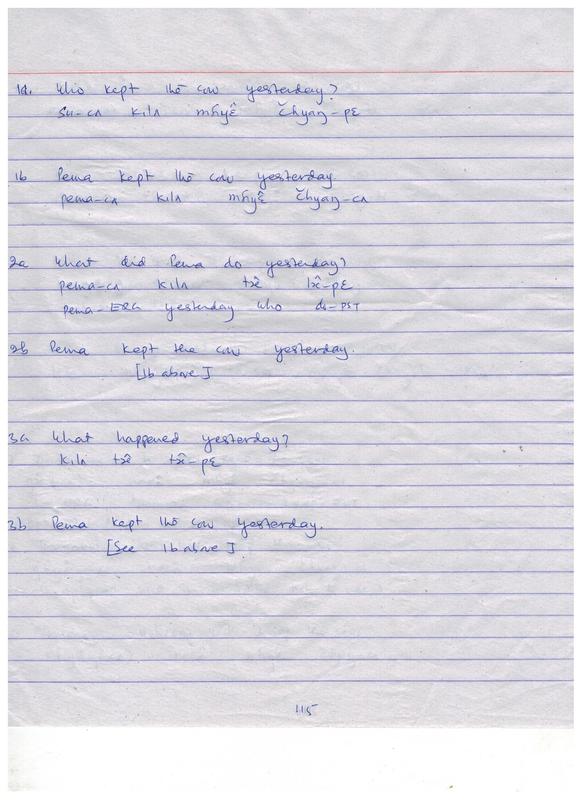 1a. Who kept the cow yesterday?
su-cʌ kilʌ mɦyɛ̂ čhyaŋ-pɛ
1b Pema kept the cow yesterday
pema-cʌ kilʌ mɦyɛ̂ čhyaŋ-cʌ
2a What did Pema do yesterday?
pema-cʌ kilʌ
pema-ERG yesterday who do-PST
2b Pema kept the cow yesterday.
[1b above]
3a What happened yesterday?
kilʌ
3b Pema kept the cow yesterday.
[See 1b above]
115